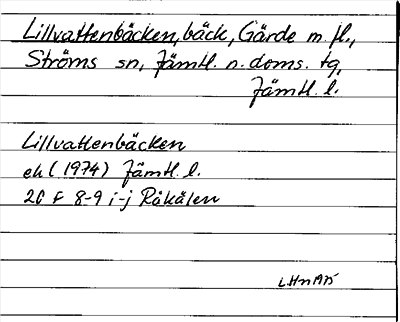 Lillvattenbäcken, bäck, Gärde m. fl.,
Ströms sn, Jämtl. n. doms. tg,
Jämtl. l.
Lillvattenbäcken
ek (1974) Jämtl. l.
20 F 8-9 i-j Råkälen
LHn 1975